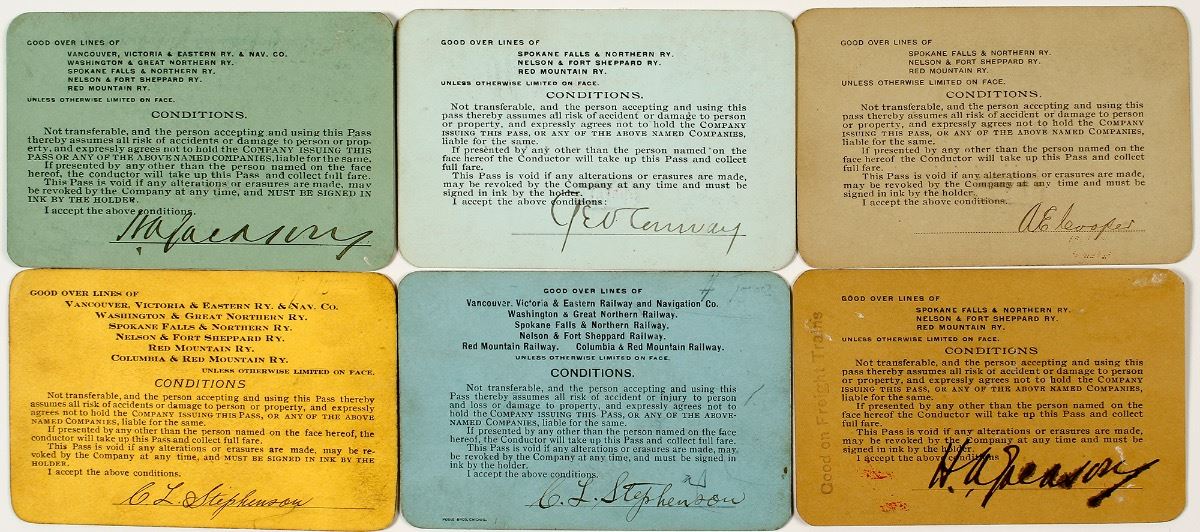 GOOD OVER LINES OF
VANCOUVER, VICTORIA & EASTERN RY. & NAV. CO.
WASHINGTON & GREAT NORTHERN RY.
SPOKANE FALLS & NORTHERN RY.
NELSON & FORT SHEPPARD RY.
RED MOUNTAIN RY.
UNLESS OTHERWISE LIMITED ON FACE.
CONDITIONS.
Not transferable, and the person accepting and using this Pass
thereby assumes all risk of accidents or damage to person or prop-
erty, and expressly agrees not to hold the COMPANY ISSUING THIS
PASS OR ANY OF THE ABOVE NAMED COMPANIES, liable for the same.
If presented by any other than the person named on the face
hereof, the conductor will take up this Pass and collect full fare.
This Pass is void if any alterations or erasures are made, may
be revoked by the Company at any time, and MUST BE SIGNED IN
INK BY THE HOLDER.
I accept the above conditions.
GOOD OVER LINES OF
SPOKANE FALLS & NORTHERN RY.
NELSON & FORT SHEPPARD RY.
RED MOUNTAIN RY.
UNLESS OTHERWISE LIMITED ON FACE.
CONDITIONS.
Not transferable, and the person accepting and using this
pass thereby assumes all risk of accident or damage to person
or property, and expressly agrees not to hold the COMPANY
ISSUING THIS PASS, OR ANY OF THE ABOVE NAMED COMPANIES,
liable for the same.
If presented by any other than the person named on the
face hereof the Conductor will take up this Pass and collect
full fare.
This Pass is void if any alterations or erasures are made,
may be revoked by the Company at any time and must be
signed in ink by the holder.
I accept the above conditions:
Geo Conway
GOOD OVER LINES OF
SPOKANE FALLS & NORTHERN RY.
NELSON & FORT SHEPPARD RY.
RED MOUNTAIN RY.
UNLESS OTHERWISE LIMITED ON FACE.
CONDITIONS.
Not transferable, and the person accepting and using this
pass thereby assumes all risk of accident or damage to person
or property, and expressly agrees not to hold the COMPANY
ISSUING THIS PASS, OR ANY OF THE ABOVE NAMED COMPANIES,
liable for the same.
If presented by any other than the person named on the
face hereof the Conductor will take up this Pass and collect
full fare.
This Pass is void if any alterations or erasures are made,
may be revoked by the Company at any time and must be
signed in ink by the holder.
I accept the above conditions.
A E Cooper
GOOD OVER LINES OF
VANCOUVER, VICTORIA & EASTERN RY. & NAV. CO.
WASHINGTON & GREAT NORTHERN RY.
SPOKANE FALLS & NORTHERN RY.
NELSON & FORT SHEPPARD RY.
RED MOUNTAIN RY.
COLUMBIA & RED MOUNTAIN RY.
UNLESS OTHERWISE LIMITED ON FACE.
CONDITIONS
Not transferable, and the person accepting and using this Pass thereby
assumes all risk of accidents or damage to person or property, and expressly
agrees not to hold the COMPANY ISSUING THIS PASS, OR ANY OF THE ABOVE
NAMED COMPANIES, liable for the same.
If presented by any other than the person named on the face hereof, the
conductor will take up this Pass and collect full fare.
This Pass is void if any alterations or erasures are made, may be re-
voked by the Company at any time, and MUST BE SIGNED IN INK BY THE
HOLDER.
I accept the above conditions.
C L Stephenson
GOOD OVER LINES OF
Vancouver, Victoria & Eastern Railway and Navigation Co.
Washington & Great Northern Railway.
Spokane Falls & Northern Railway.
Nelson & Fort Sheppard Railway.
Red Mountain Railway. Columbia & Red Mountain Railway.
UNLESS OTHERWISE LIMITED ON FACE.
CONDITIONS.
Not transferable, and the person accepting and using this
Pass thereby assumes all risk of accident or injury to person
and loss or damage to property, and expressly agrees not to
hold the COMPANY ISSUING THIS PASS, OR ANY OF THE ABOVE-
NAMED COMPANIES, liable for the same.
If presented by any other than the person named on the face
hereof, the Conductor will take up this Pass and collect full fare.
This Pass is void if any alterations or erasures are made,
may be revoked by the Company at any time, and must be signed in
ink by the holder.
I accept the above conditions.
C. L. Stephenson
POOLE BROS. CHICAGO.
GOOD OVER LINES OF
SPOKANE FALLS & NORTHERN RY.
NELSON & FORT SHEPPARD RY.
RED MOUNTAIN RY.
UNLESS OTHERWISE LIMITED ON FACE.
CONDITIONS
Not transferable, and the person accepting and using this
pass thereby assumes all risk of accident or damage to person
or property, and expressly agrees not to hold the COMPANY
ISSUING THIS PASS, OR ANY OF THE ABOVE NAMED COMPANIES,
liable for the same.
If presented by any other than the person named on the
face hereof the Conductor will take up this Pass and collect
full fare.
This Pass is void if any alterations or erasures are made,
may be revoked by the Company at any time and must be
signed in ink by the holder.
I accept the above conditions
Good on Freight Trains